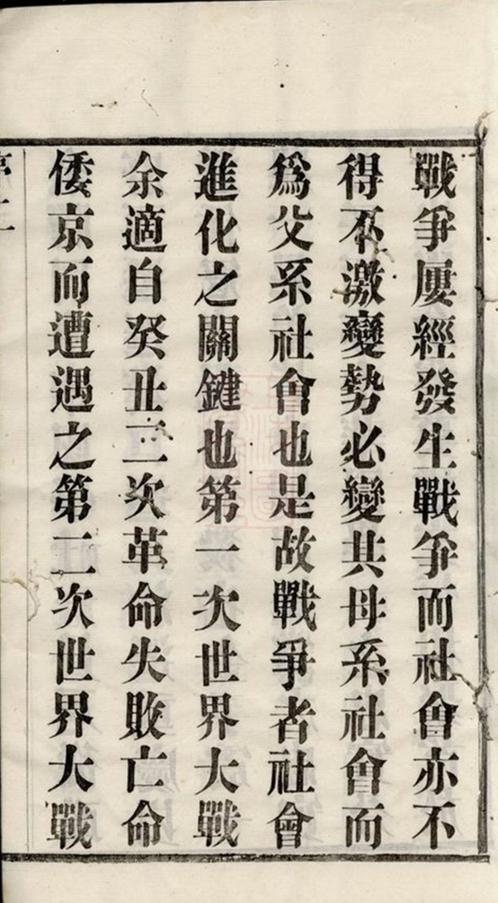 戰爭屢經發生戰爭而社會亦不
得不激變勢必變其母系社會而
爲父系社會也是故戰爭者社會
進化之關鍵也第一次世界大戰
余適自癸丑二次革命失敗亡命
倭京而遭遇之第二次世界大戰